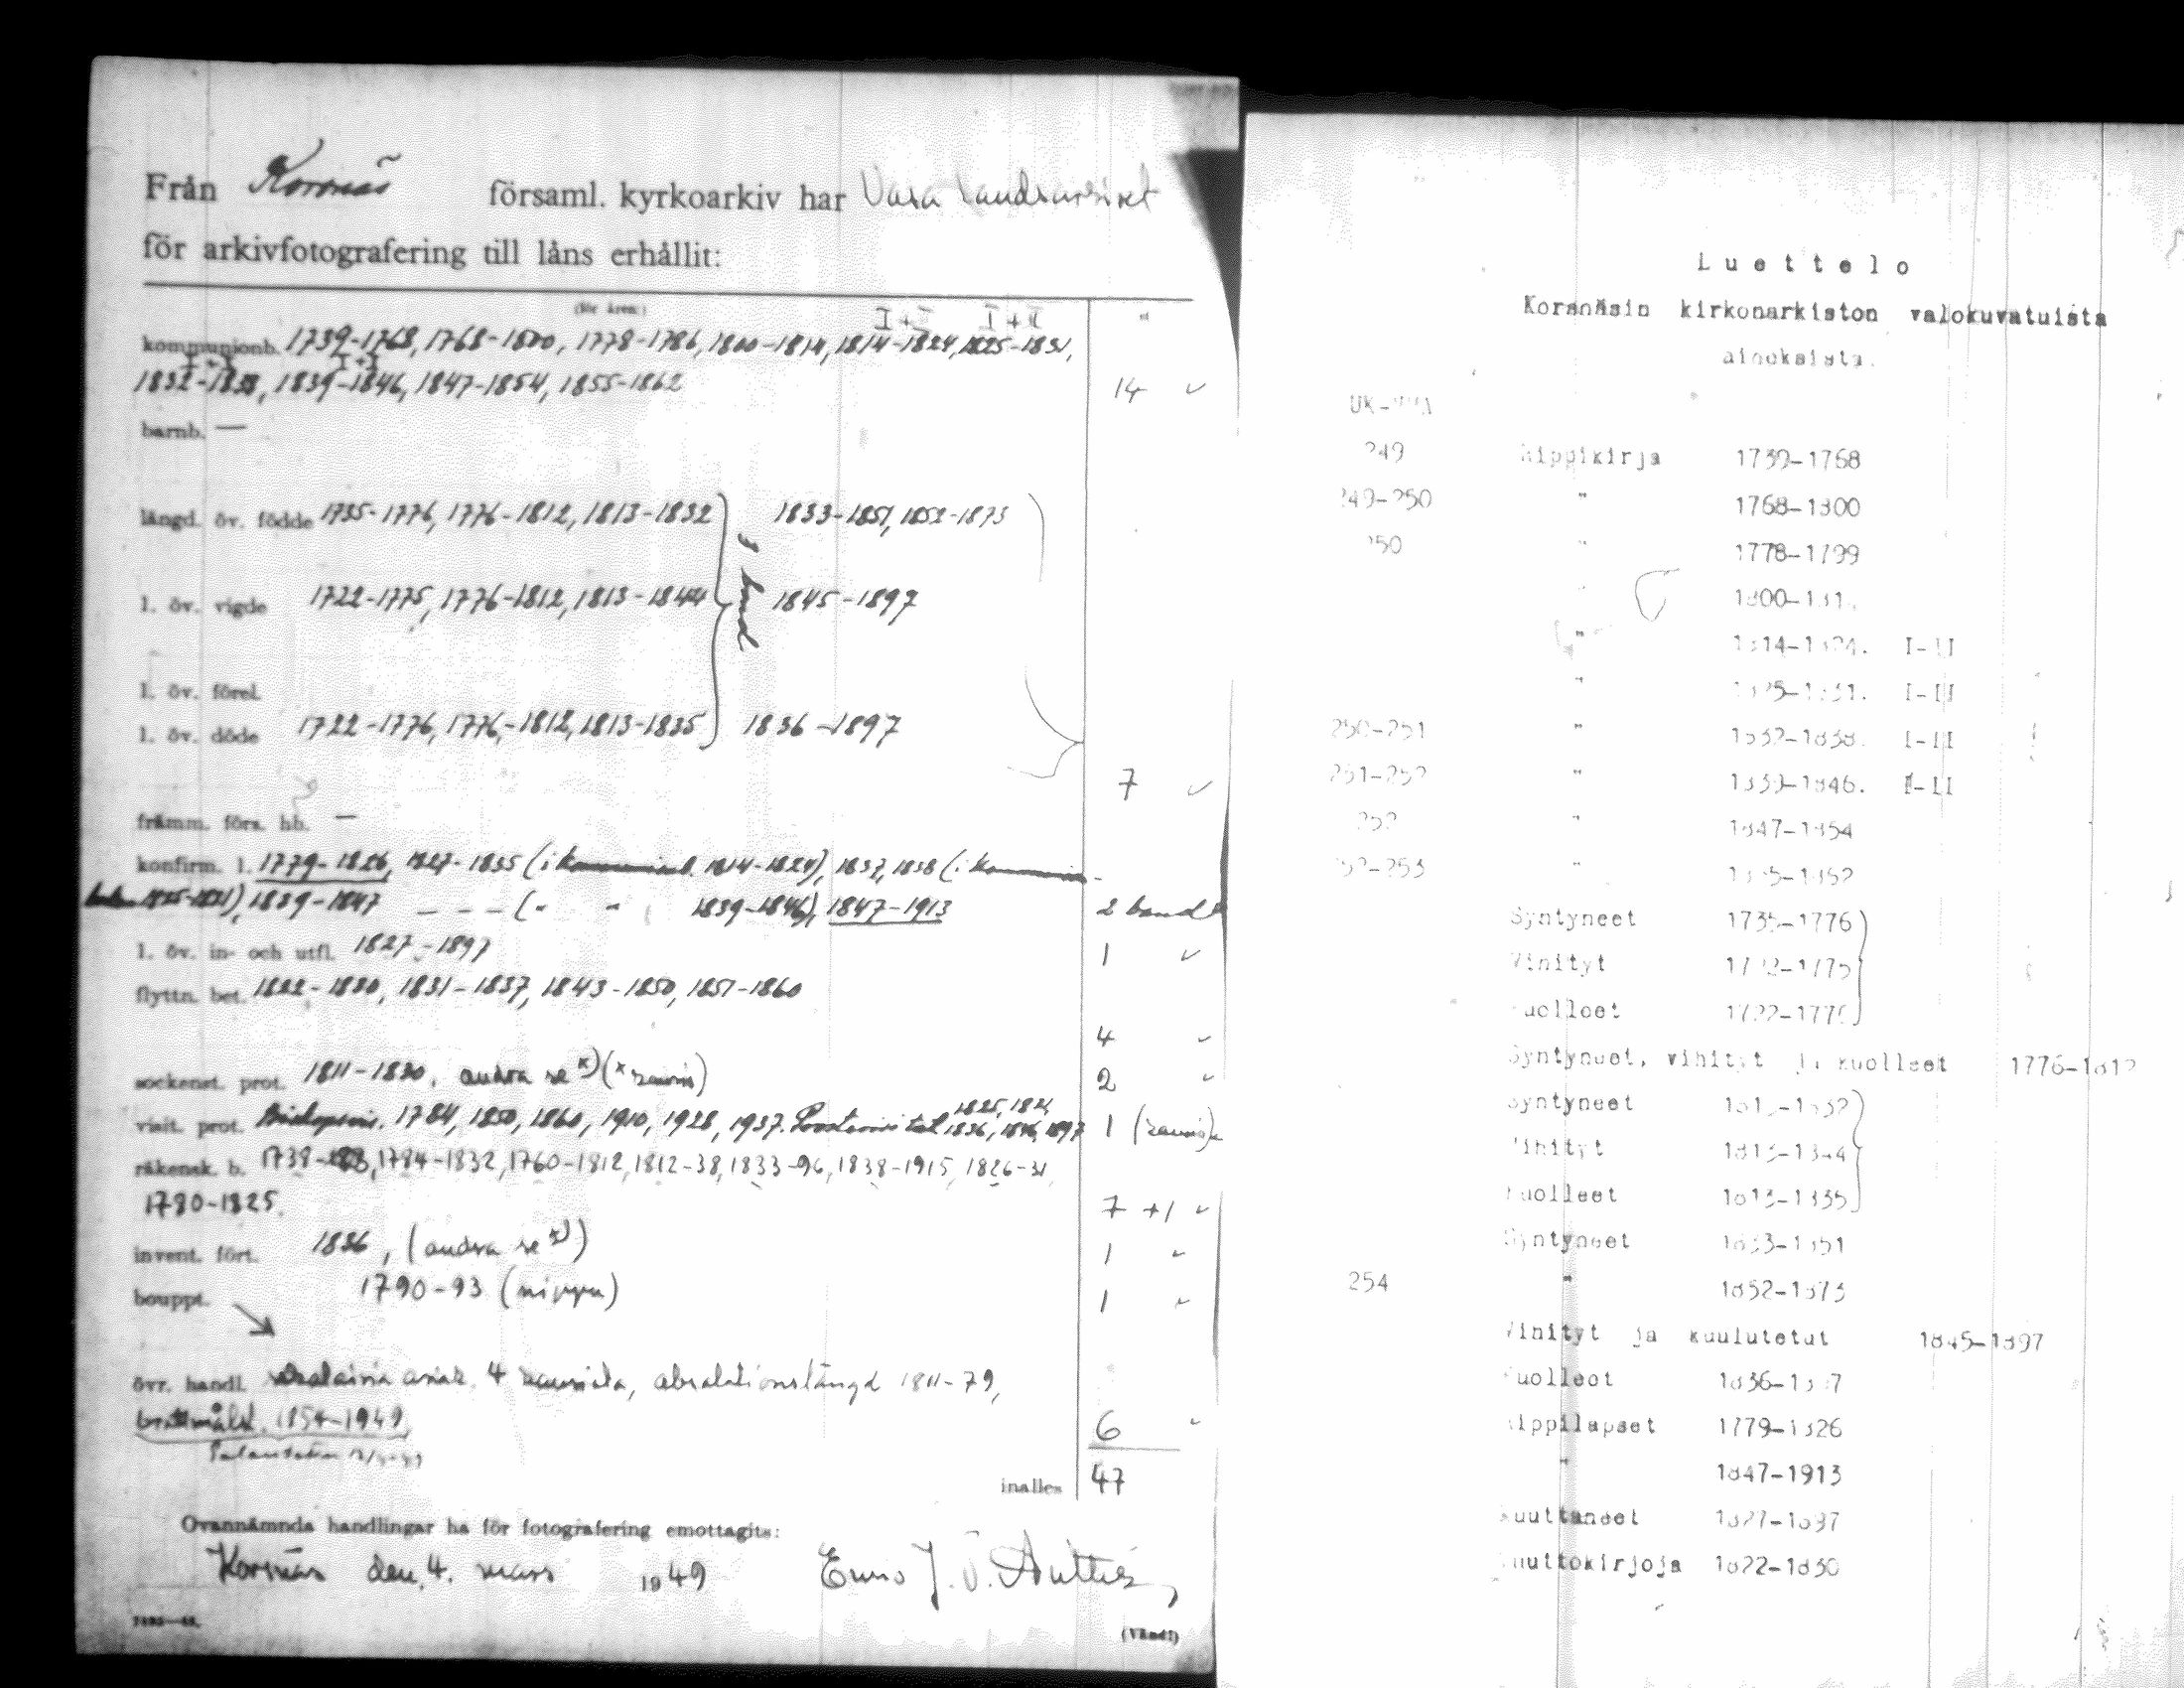 Från Korsnäs församl. kyrkoarkiv har Vasa landsarkivet
för arkivfotografering till låns erhållit:
(för åren:)
I+I I+II
kommunionb. 1739-1768, 1768-1800, 1778-1786, 1800-1814, 1814-1824, 1825-1831,
I+I I+I
1832-1838, 1839-1846, 1847-1854, 1855-1862 14 ✓
barnb. —
längd. öv. födde 1735-1776, 1776-1812, 1813-1832 1833-1851, 1852-1873
band
l. öv. vigde 1722-1775, 1776-1812, 1813-1844 1845-1897
l. öv. förel.
l. öv. döde 1722-1776, 1776-1812, 1813-1835 1836-1897
7 ✓
främm. förs. hb. —
konfirm. l. 1779-1826, 1827-1835 (i 1814-1824), 1837, 1838 (i
1825-1831), 1839-1847 — — — (" " 1839-1846), 1847-1913 2 band
l. öv. in- och utfl. 1827-1897 1 ✓
flyttn. bet. 1822-1830, 1831-1837, 1843-1850, 1851-1860
4 ✓
sockenst. prot. 1811-1830, andra se x) (x 2 ✓
visit. prot. 1784, 1850, 1860, 1910, 1928, 1937. 1825, 1831, 1836, 1846, 1897 1
räkensk. b. 1784-1832, 1760-1812, 1812-38, 1833-96, 1838-1915, 1826-31
1790-1825. 7 +1 ✓
invent. fört. 1836, (andra se x)) 1 ✓
bouppt. 1790-93 (nippu) 1 ✓
övr. handl. 4 absolutionslängd 1811-79,
1854-1949 6 ✓
inalles 47
Ovannämnda handlingar ha för fotografering emottagits:
Korsnäs den 4. mars 1949
(Vänd!)
Luettelo
Korsnäsin kirkonarkiston valokuvatuista
aineksista.
249 Rippikirja 1739-1768
249-250 " 1768-1800
250 " 1778-1799
1800-181
" 1814-1824. I-II
" 1825-1831. I-II
250-251 " 1832-1838. I-II
251-252 " 1839-1846. I-II
252 " 1847-1854
252-253 " 1855-1862
Syntyneet 1735-1776
Vihityt 1722-1775
Kuolleet 1722-1776
Syntyneet, vihityt ja kuolleet 1776-1812
Syntyneet 1813-1832
Vihityt 1813-1844
Kuolleet 1813-1835
Syntyneet 1833-1851
254 " 1852-1873
Vihityt ja kuulutetut 1845-1897
Kuolleet 1836-1897
Rippilapset 1779-1826
" 1847-1913
Muuttaneet 1827-1897
Muuttokirjoja 1822-1830